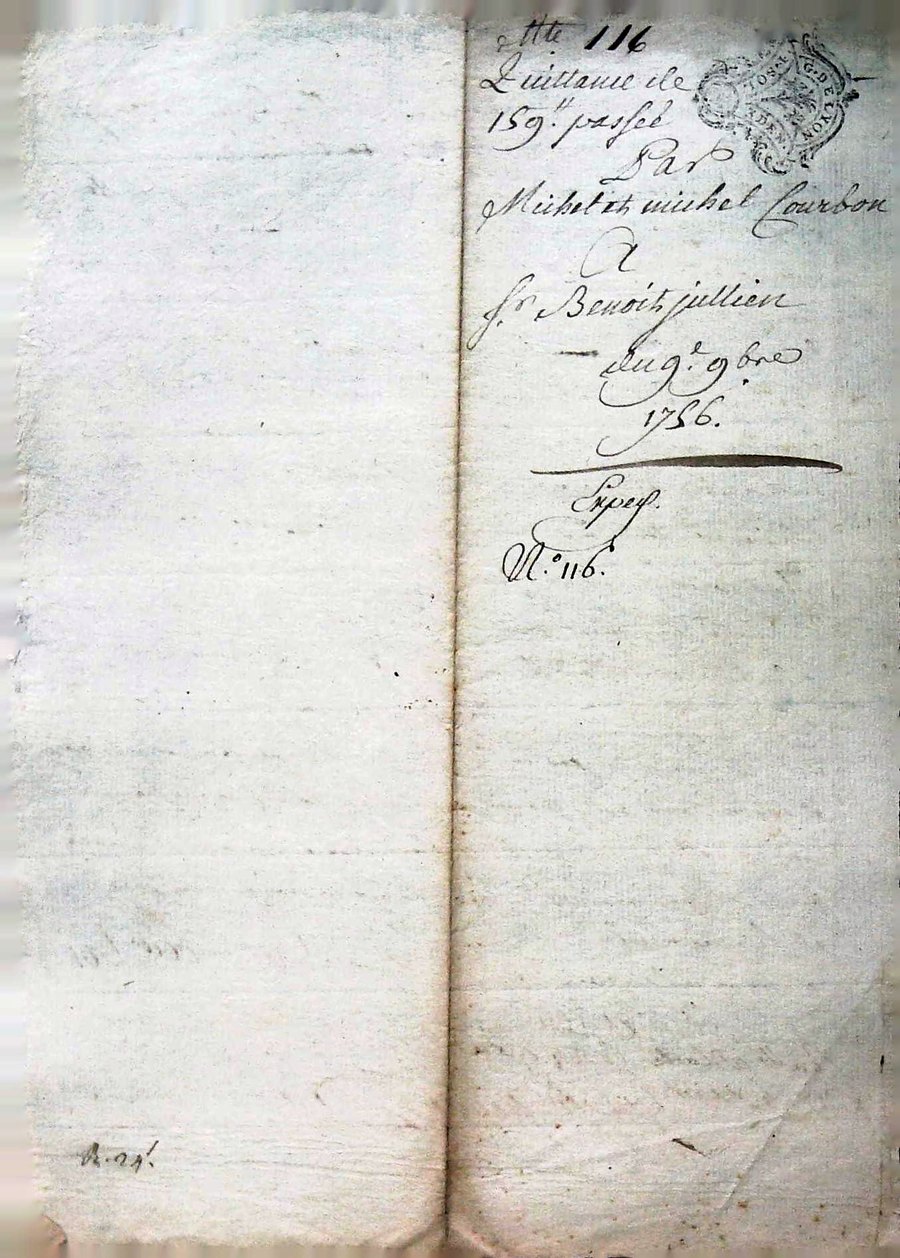 Cotte 116
Quittance de
159.₶ passée
Par
Michel et michel Courbon
A
Sr. Benoit jullien
du 9.e 9bre
1756.
Exped.
N.o 116.
G. DE LYON
R. 24s.